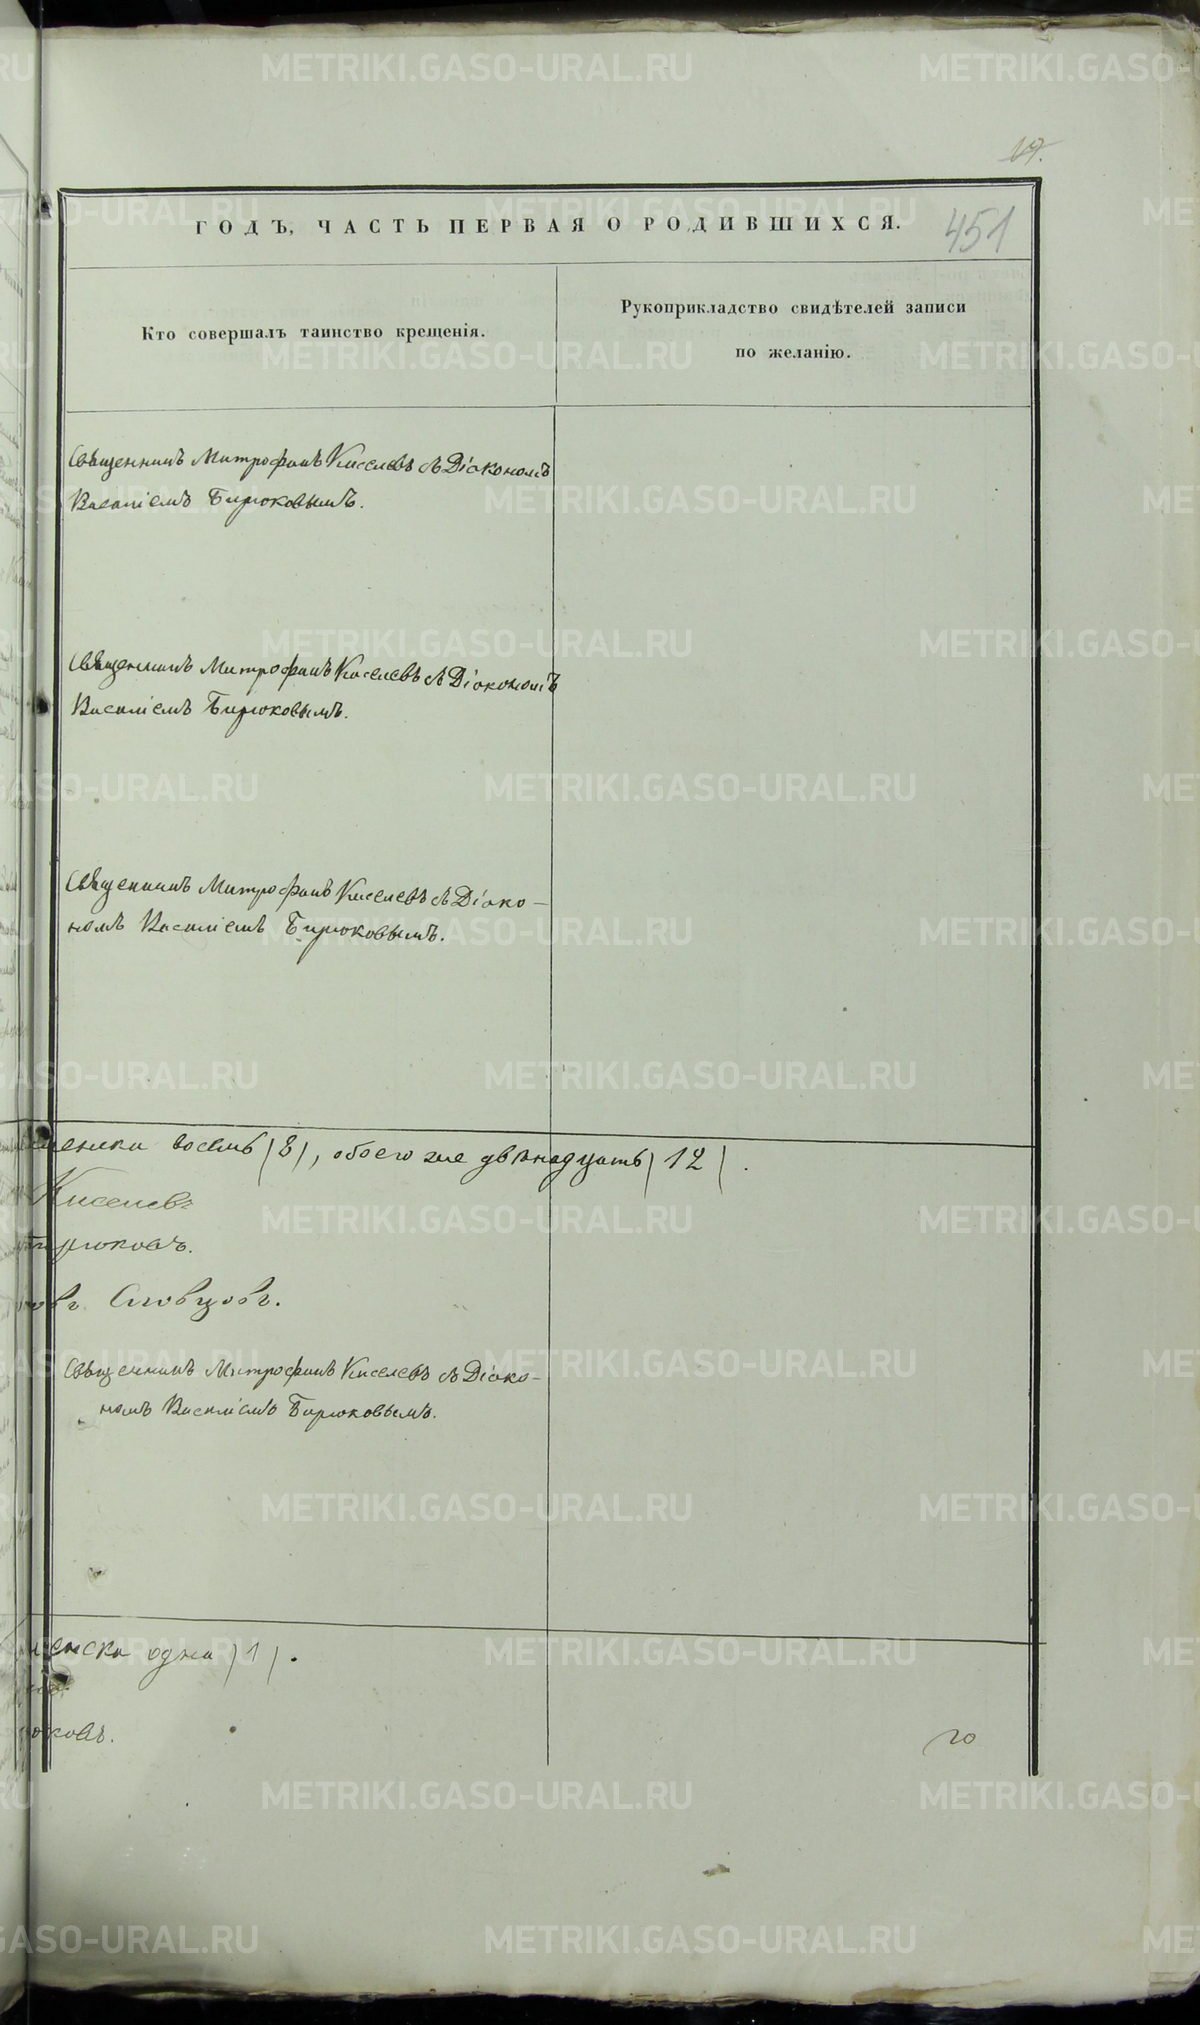 19.
ГОДЪ, ЧАСТЬ ПЕРВАЯ О РОДИВШИХСЯ.
451
Кто совершалъ таинство крещенія.
Рукоприкладство свидѣтелей записи
по желанію.
Священникъ Митрофанъ Киселевъ съ Діакономъ
Василіемъ Бирюковымъ.
Священникъ Митрофанъ Киселевъ съ Діакономъ
Василіемъ Бирюковымъ.
Священникъ Митрофанъ Киселевъ съ Діако-
номъ Василіемъ Бирюковымъ.
восемь (8), обоего же двѣнадцать (12).
Киселевъ
Бирюковъ.
Словцовъ.
Священникъ Митрофанъ Киселевъ съ Діако-
номъ Василіемъ Бирюковымъ.
женска одна (1).
юковъ.
METRIKI.GASO-URAL.RU